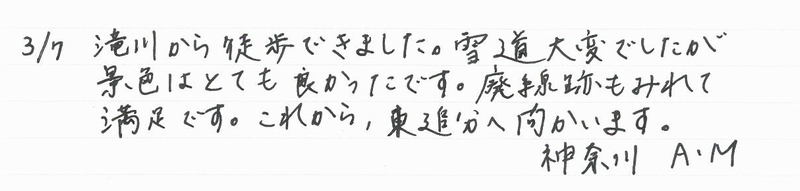 3/7 滝川から徒歩できました。雪道大変でしたが
景色はとても良かったです。廃線跡もみれて
満足です。これから、東追分へ向かいます。
神奈川 A.M